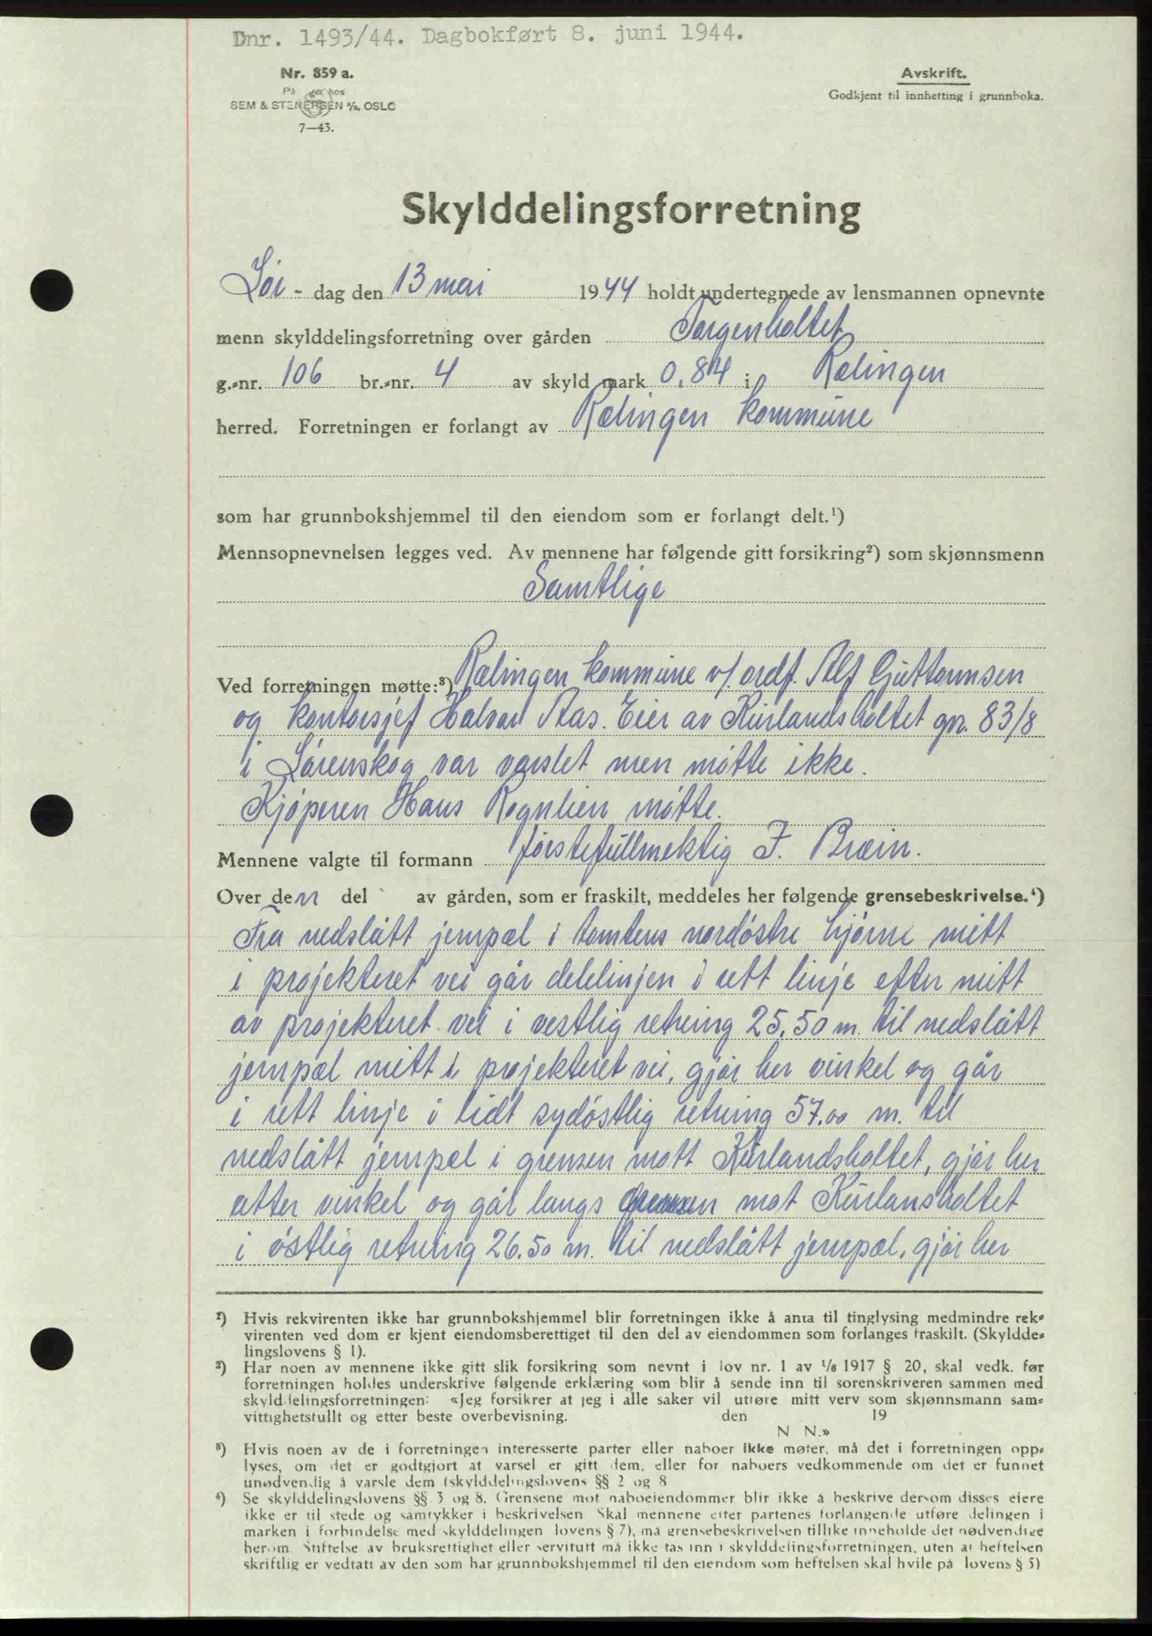 Dnr. 1493/44. Dagbokført 8. juni 1944.
Nr. 859 a.
På hos
SEM & STENERSEN A/S, OSLO
7—43.
Avskrift.
Godkjent til innhefting i grunnboka.
Skylddelingsforretning
Lør- dag den 13 mai 1944 holdt undertegnede av lensmannen opnevnte
menn skylddelingsforretning over gården Torgenholtet
g.-nr. 106 br.-nr. 4 av skyld mark 0,84 i Rælingen
herred. Forretningen er forlangt av Rælingen kommune
som har grunnbokshjemmel til den eiendom som er forlangt delt.¹)
Mennsopnevnelsen legges ved. Av mennene har følgende gitt forsikring²) som skjønnsmenn
Samtlige
Ved forretningen møtte:³) Rælingen kommune v/ ordf. Alf Guttormsen
og kontorsjef Halvor Aas. Eier av Kurlandsholtet gnr. 83/8
i Lørenskog var varslet men møtte ikke.
Kjøperen Hans Rognlien møtte.
Mennene valgte til formann førstefullmektig F. Bræin.
Over den del av gården, som er fraskilt, meddeles her følgende grensebeskrivelse.⁴)
Fra nedslått jernpæl i tomtens nordøstre hjørne mitt
i projekteret vei går delelinjen i rett linje efter mitt
av projekteret vei i vestlig retning 25,50 m. til nedslått
jernpæl mitt i projekteret vei, gjør her vinkel og går
i rett linje i lidt sydøstlig retning 57.00 m. til
nedslått jernpæl i grensen mott Kurlandsholtet, gjør her
atter vinkel og går langs grensen mot Kurlansholtet
i østlig retning 26.50 m. til nedslått jernpæl, gjør her
¹) Hvis rekvirenten ikke har grunnbokshjemmel blir forretningen ikke å anta til tinglysing medmindre rek-
virenten ved dom er kjent eiendomsberettiget til den del av eiendommen som forlanges fraskilt. (Skyldde-
lingslovens § 1).
²) Har noen av mennene ikke gitt slik forsikring som nevnt i lov nr. 1 av 1/6 1917 § 20, skal vedk. før
forretningen holdes underskrive følgende erklæring som blir å sende inn til sorenskriveren sammen med
skylddelingsforretningen: «Jeg forsikrer at jeg i alle saker vil utføre mitt verv som skjønnsmann sam-
vittighetsfullt og etter beste overbevisning. den 19
N N.»
³) Hvis noen av de i forretningen interesserte parter eller naboer ikke møter, må det i forretningen opp-
lyses, om det er godtgjort at varsel er gitt dem, eller for naboers vedkommende om det er funnet
unødvendig å varsle dem (skylddelingslovens §§ 2 og 8
⁴) Se skylddelingslovens §§ 3 og 8. Grensene mot naboeiendommer blir ikke å beskrive dersom disses eiere
ikke er til stede og samtykker i beskrivelsen Skal mennene etter partenes forlangende utføre delingen i
marken i forbindelse med skylddelingen lovens § 7), må grensebeskrivelsen tillike inneholde det nødvendige
herom. Stiftelse av bruksrettighet eller servitutt må ikke tas inn i skylddelingsforretningen, uten at heftelsen
skriftlig er vedtatt av den som har grunnbokshjemmel til den eiendom som heftelsen skal hvile på lovens § 5)